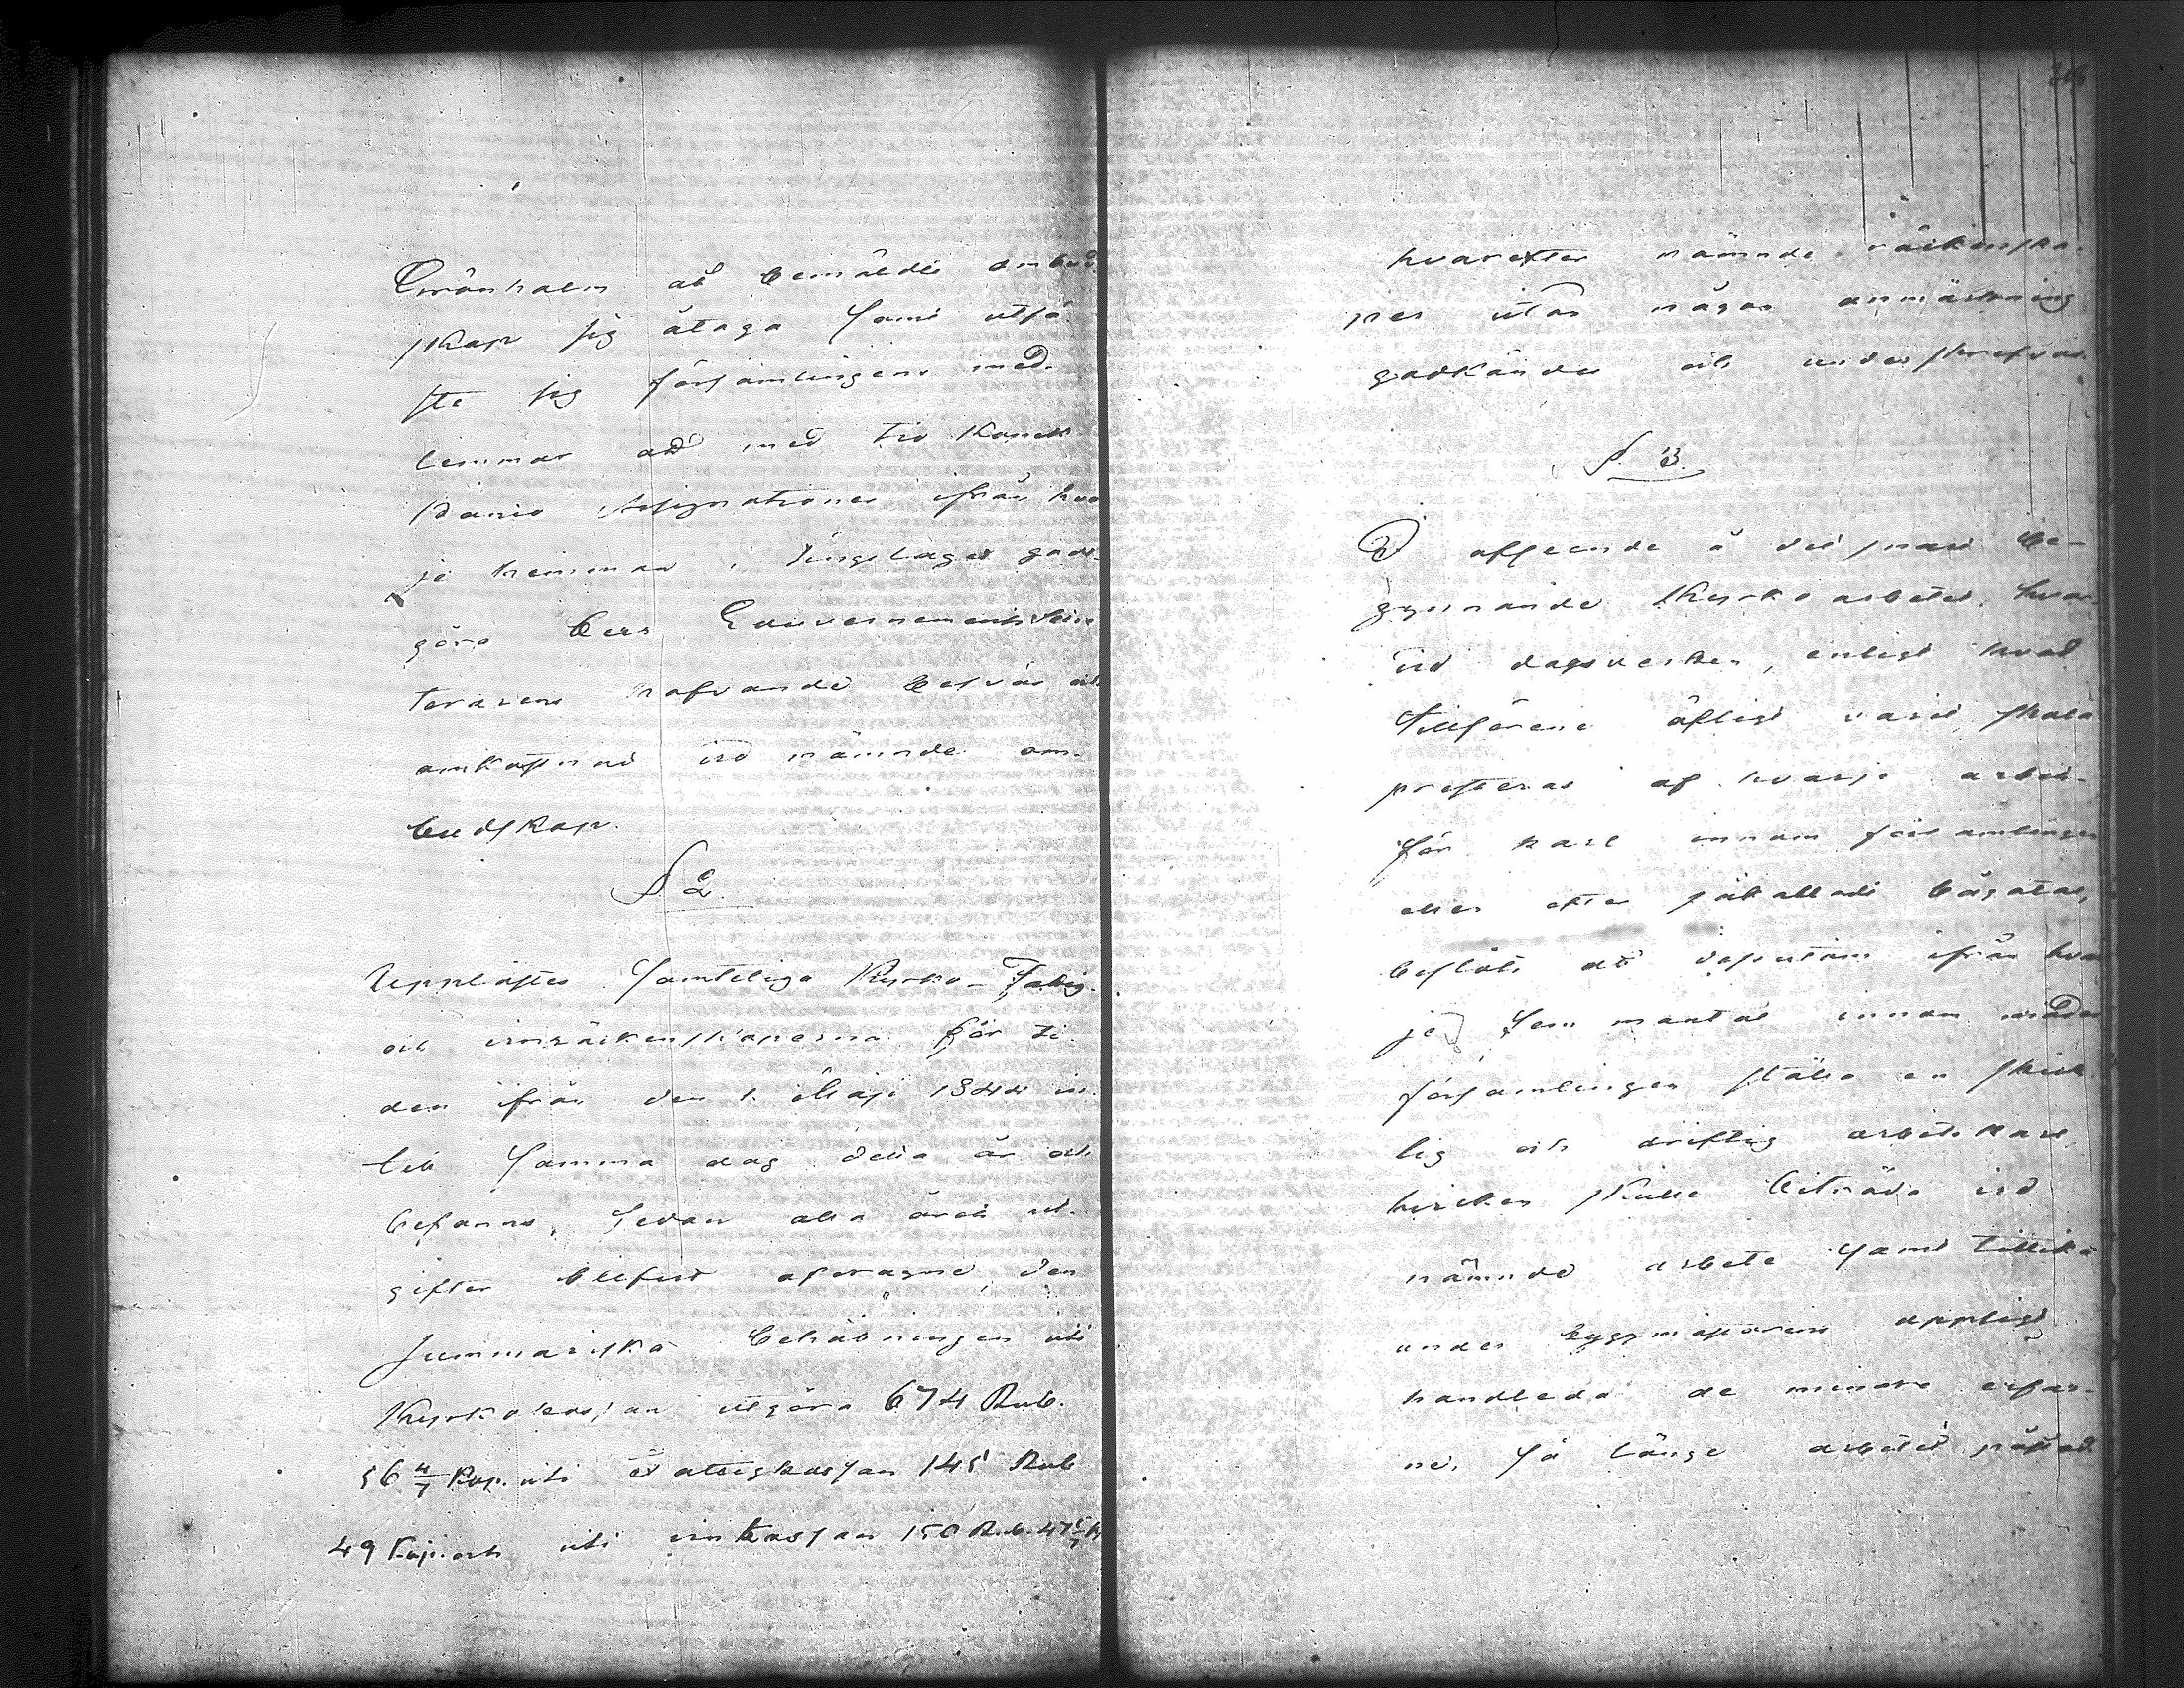 Grönholm åt bemälde ombud
skap sig åtaga samt utfä
ste sig församlingens med-
lemmar att med två Kanck
Spanis Assignationer ifrån hvar
je hemman i Tingslaget godt-
göra bem. Gouvernements
terarens hafvande besvär och
omkostnad vid nämnde om-
budskap.
§ 2.
Upplästes samteliga Kyrko- Fattig-
och vinräkenskaperna för ti-
den ifrån den 1. Maji 1844 in-
till samma dag detta år och
befanns, sedan alla årets ut-
gifter blifvit afdragne, den
summariska behållningen uti
Kyrkokassan utgöra 674 Rub.
56 4/7 Kop. uti Fattigkassan 145 Rub
49 Kop. och uti vinkassan 150 Rub. 47 5/7 K
hvarefter nämnde räkenska-
per utan någon anmärkning
godkändes och underskrefvos.
§. 3.
I afseende å det snart be-
gynnande Kyrko arbetet, hvar-
vid dagsverken, enligt hvad
tillförene öfligt varit, skola
presteras af hvarje arbet-
för karl innom församlingen
eller efter så kallade bågatal,
beslöts att desutom ifrån hvar
je fem mantal innom
församlingen ställa en skick-
lig och driftig arbetskarl
hvilken skulle biträda vid
nämnde arbete samt tillika
under byggmästarens uppsigt
handleda de mindre erfar-
ne, så länge arbetet påstod.